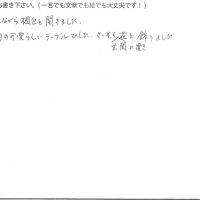 お書き下さい。(一言でも文章でも絵でも大丈夫です!)
ながら 梱包を開きました。
の可愛らしいテーブルでした。さっそく花を飾りました
玄関に置き